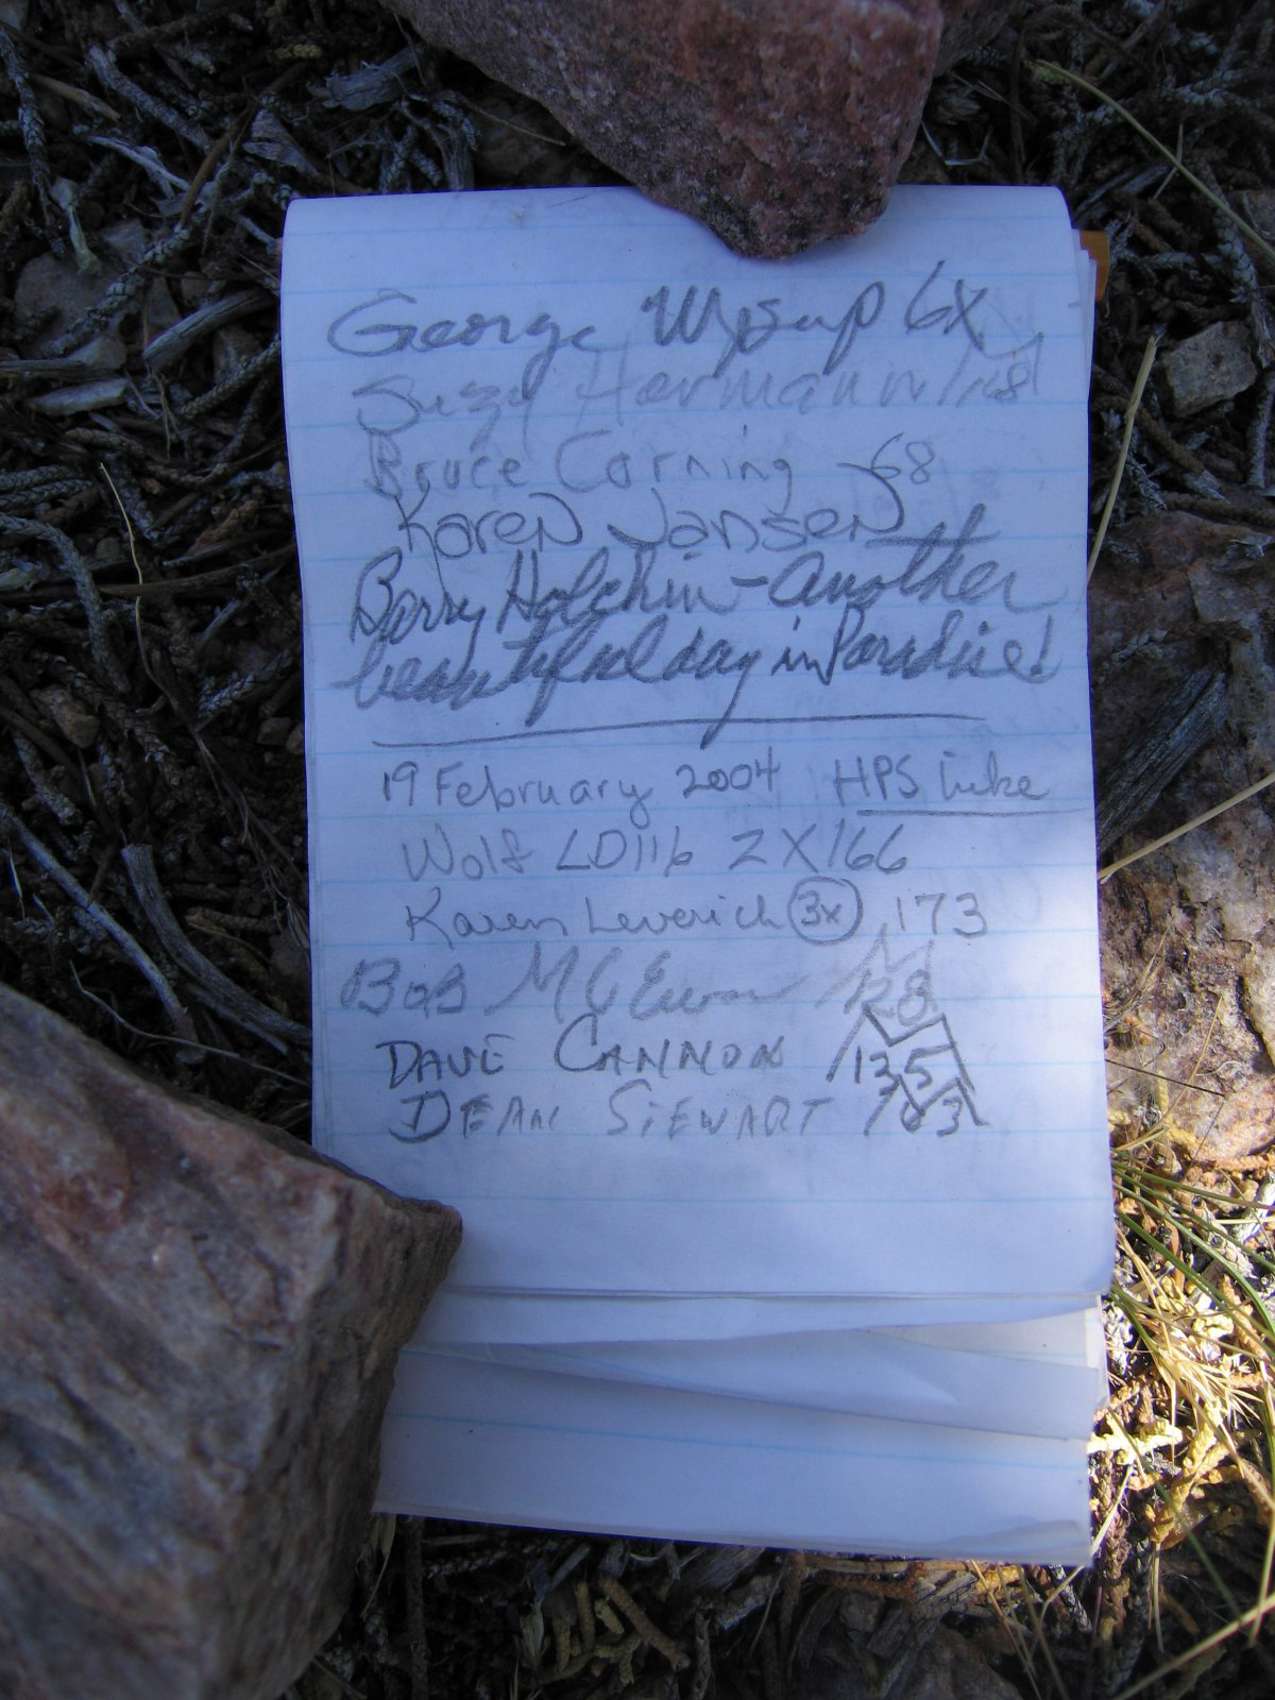 George Wysup 6X
Suzy Hermann
Bruce Corning 68
Karen Jansen
Barry Holchin - Another
beautiful day in Paradise!
19 February 2004 HPS hike
Wolf LD116 2X166
Karen Leverich 3x 173
Bob McEwan 128
DAVE CANNON 135
DEAN STEWART